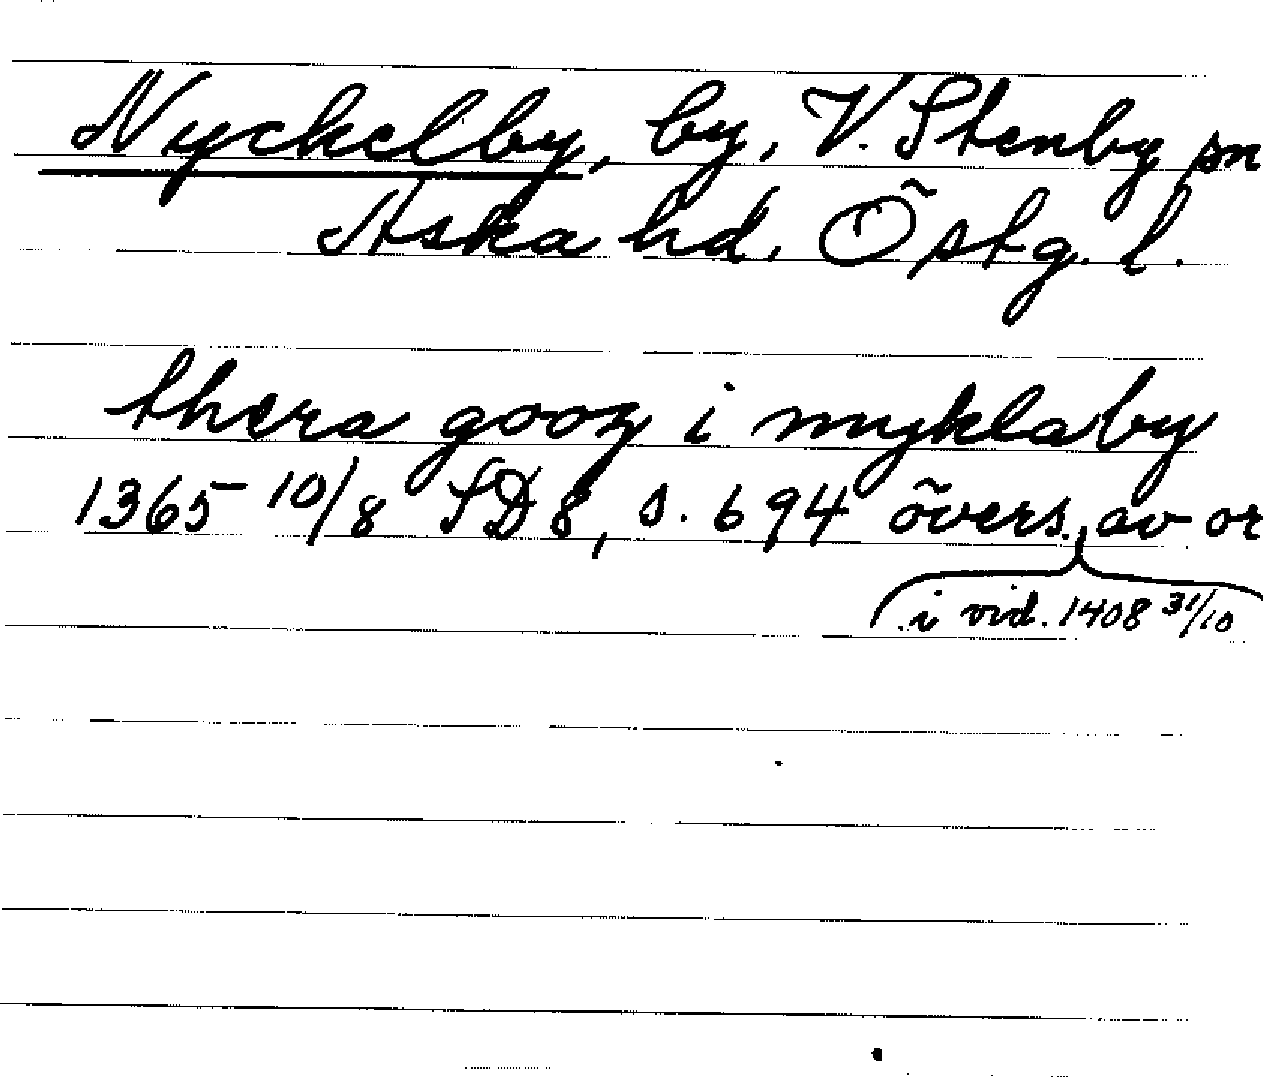 Nyckelby, by, V. Stenby sn
Aska hd. Östg. l.
thera gooz i myklaby
1365 10/8 SD 8, s. 694 övers. av or
i vid. 1408 31/10